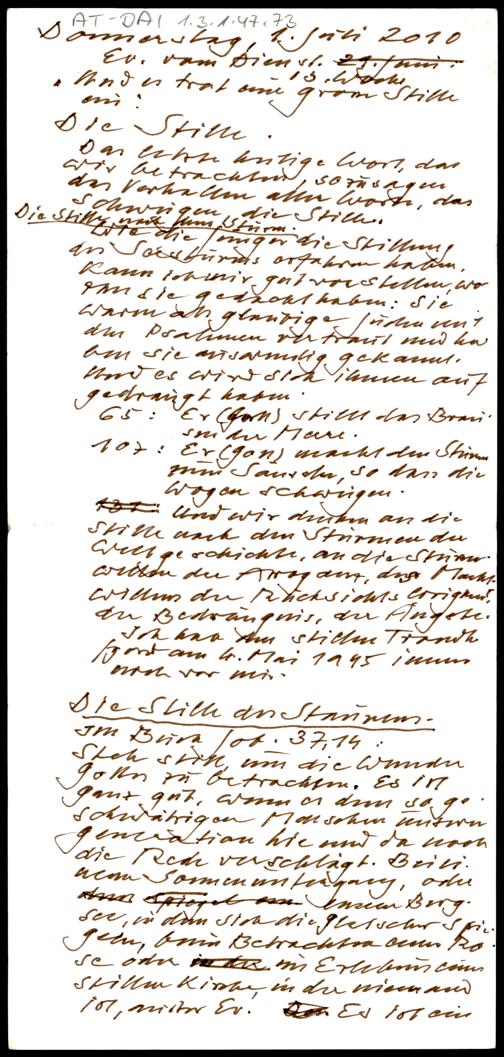 AT-DAI 1.3.1.47.73
Donnerstag, 1. Juli 2010
Ev. vom Dienst. 29. Juni.
13. Woche
"Und es trat eine große Stille
ein."
Die Stille.
Das letzte heilige Wort, das
wir betrachten, sozusagen
das Verhallen aller Worte, das
Schweigen, die Stille.
Die Stille nach dem Sturm.
Wie die Jünger die Stillung
des Seesturms erfahren haben,
kann ich mir gut vorstellen, wo
ran sie gedacht haben: Sie
waren als gläubige Juden mit
den Psalmen vertraut und ha
ben sie auswendig gekannt.
Und es wird sich ihnen auf
gedrängt haben:
65: Er (Gott) stillt das Brau
sen der Meere.
107: Er (Gott) macht den Sturm
zum Säuseln, so dass die
Wogen schweigen.
Und wir denken an die
Stille nach den Stürmen der
Weltgeschichte, an die Sturm
wellen der Arroganz, des Macht
willens, der Rücksichtslosigkeit,
der Bedrängnis, der Ängste.
Ich hab den stillen Trondh
fjord am 8. Mai 1945 immer
noch vor mir.
Die Stille des Staunens.
Im Buch Job. 37,14:
Steh still, um die Wunder
Gottes zu betrachten. Es ist
ganz gut, wenn es dem so ge
schwätzigen Menschen unserer
Generation hie und da noch
die Rede verschlägt. Bei ei
nem Sonnenuntergang, oder
einem Berg
see, in dem sich die Gletscher spie
geln, beim Betrachten einer Ro
se oder im Erlebnis einer
stillen Kirche, in der niemand
ist, außer Er. Es ist ein